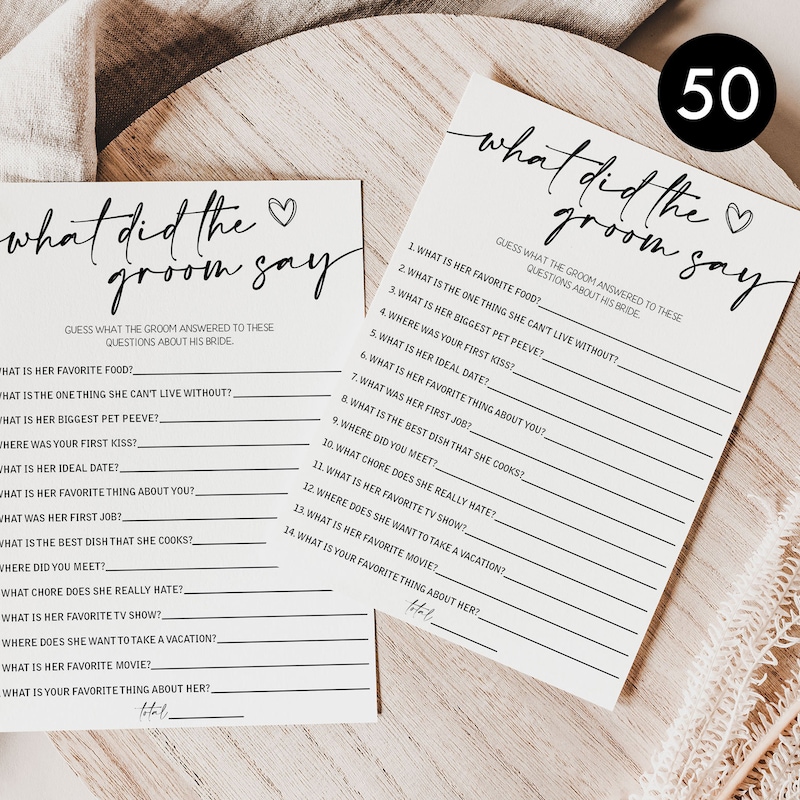 50
what did the
groom say
GUESS WHAT THE GROOM ANSWERED TO THESE
QUESTIONS ABOUT HIS BRIDE.
HAT IS HER FAVORITE FOOD?
HAT IS THE ONE THING SHE CAN'T LIVE WITHOUT?
HAT IS HER BIGGEST PET PEEVE?
HERE WAS YOUR FIRST KISS?
HAT IS HER IDEAL DATE?
HAT IS HER FAVORITE THING ABOUT YOU?
HAT WAS HER FIRST JOB?
HAT IS THE BEST DISH THAT SHE COOKS?
HERE DID YOU MEET?
WHAT CHORE DOES SHE REALLY HATE?
WHAT IS HER FAVORITE TV SHOW?
WHERE DOES SHE WANT TO TAKE A VACATION?
WHAT IS HER FAVORITE MOVIE?
WHAT IS YOUR FAVORITE THING ABOUT HER?
total
what did the
groom say
GUESS WHAT THE GROOM ANSWERED TO THESE
QUESTIONS ABOUT HIS BRIDE.
1. WHAT IS HER FAVORITE FOOD?
2. WHAT IS THE ONE THING SHE CAN'T LIVE WITHOUT?
3. WHAT IS HER BIGGEST PET PEEVE?
4. WHERE WAS YOUR FIRST KISS?
5. WHAT IS HER IDEAL DATE?
6. WHAT IS HER FAVORITE THING ABOUT YOU?
7. WHAT WAS HER FIRST JOB?
8. WHAT IS THE BEST DISH THAT SHE COOKS?
9. WHERE DID YOU MEET?
10. WHAT CHORE DOES SHE REALLY HATE?
11. WHAT IS HER FAVORITE TV SHOW?
12. WHERE DOES SHE WANT TO TAKE A VACATION?
13. WHAT IS HER FAVORITE MOVIE?
14. WHAT IS YOUR FAVORITE THING ABOUT HER?
total